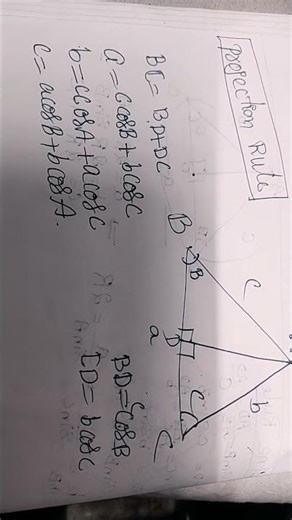 Projection Rule
BC = BD+DC
a = c cosB + b cosC
b = c cosA + a cosC
c = a cosB + b cosA.
B
B
c
D
a
C
C
b
BD = c cosB
CD = b cosC